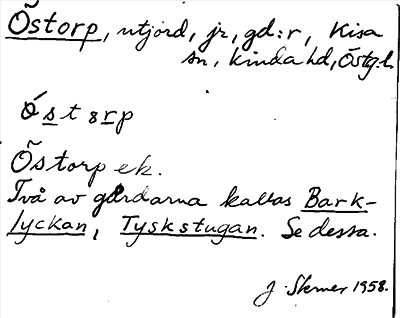 Östorp, utjord, jr, gd:r, Kisa
sn, Kinda hd, Östg. l.
ó̲s̲t 8 r̲p
Östorp ek.
Två av gårdarna kallas Bark-
lyckan, Tyskstugan. Se dessa.
J. Sterner 1958.